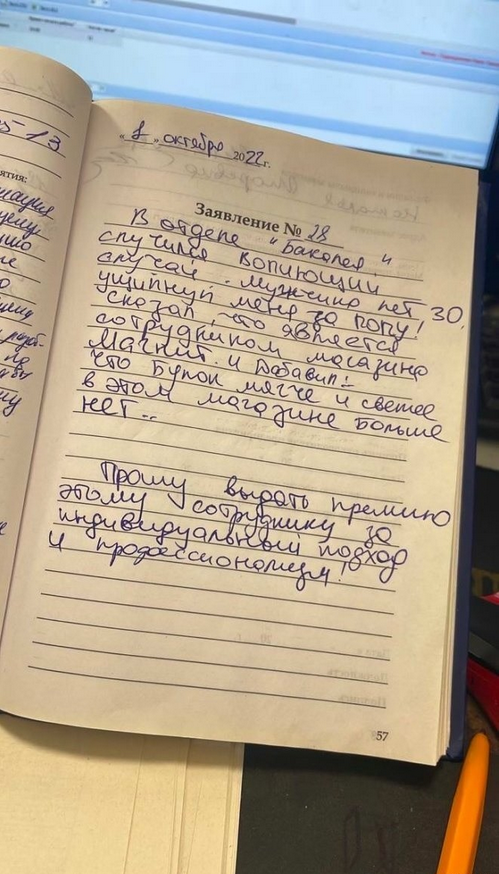 513
ятия:
"1" октября 2022г.
Заявление № 28
В отделе "Бакалея"
случился вопиющий
случай. Мужчина лет 30,
ущипнул меня за попу!
сказал, что является
сотрудником магазина
Магнит. и Добавил:-
что булок мягче и свежее
в этом магазине больше
нет...
Прошу выдать премию
этому сотруднику за
индивидуальный подход
и профессионализм!
57